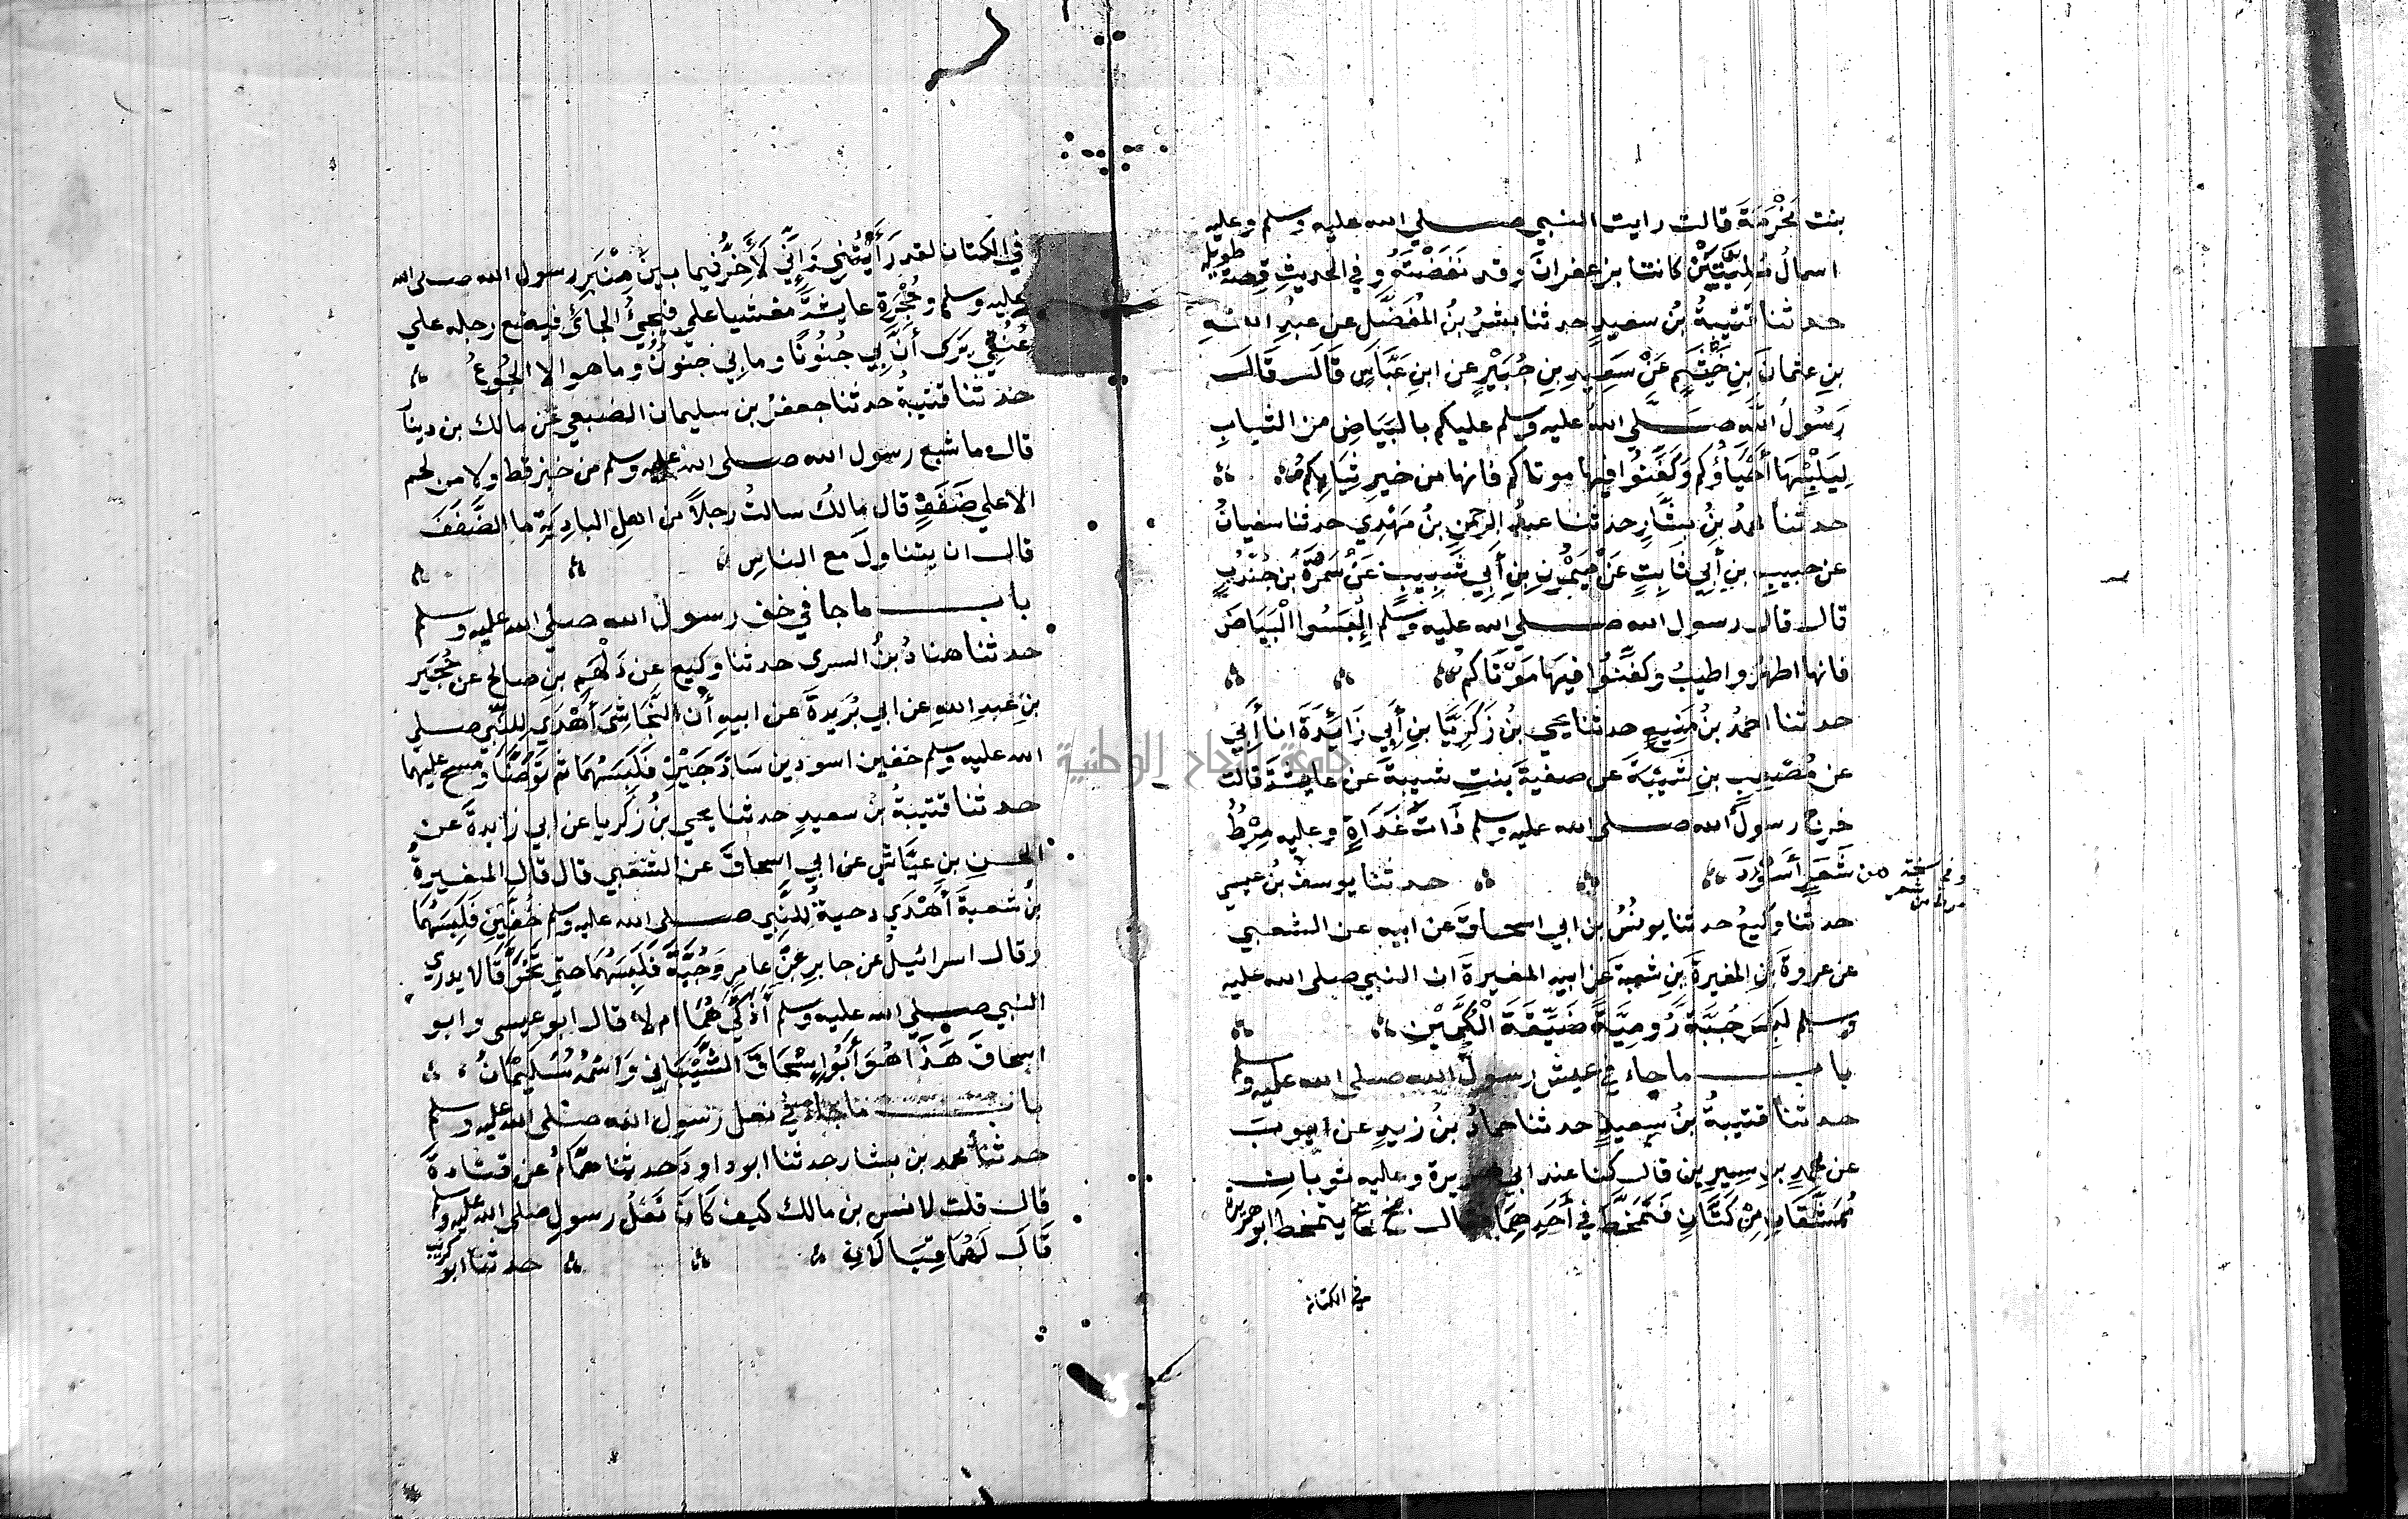 بنت مَخْرَمَةَ قالت رايت النبي صلي الله عليه وسلم وعليه
اسمالُ مُلَيَّتَيْنِ كانتا بزعفران وقد نَفَضَتْهُ وفي الحديثِ قصة طويلة
حدثنا قتيبةُ بْنُ سعيدٍ حدثنا بشرُ بنُ المُفَضَّل عن عبدِ اللهِ
بنِ عثمانَ بنِ خُثَيْمٍ عَنْ سَعِيدِ بنِ جُبَيْرٍ عن ابنِ عَبَّاسٍ قَالَ قَالَ
رَسُولُ اللَّهِ صَلَّى اللهُ عليه وسلم عليكم بالبَيَاضِ من الثيابِ
لِيَلْبِسْهَا أَحْيَاؤُكم وَكَفِّنُوا فيها موتاكم فانها من خيرِ ثِيَابِكم
حدثنا محمدُ بنُ بشَّارٍ حدثنا عبدُ الرحمنِ بنُ مَهْدِي حدثنا سفيانُ
عن حبيبِ بنِ أَبِي ثَابِتٍ عَنْ مَيْمُونِ بنِ أَبِي شَبِيبٍ عَنْ سَمُرَةَ بْنِ جُنْدُبٍ
قال قال رسول الله صلي الله عليه وسلم إِلْبَسُوا الْبَيَاضَ
فانها اطهرُ واطيبُ وكفنُوا فيهَا مَوْتَاكم
حدثنا احمدُ بنُ مَنِيعٍ حدثنا يحيى بنُ زَكَرِيَّا بنِ أَبِي زَائِدَةَ انا أَبِي
عن مُصْعَبِ بنِ شَيْبَةَ عن صفيةَ بنتِ شيبةَ عن عايشةَ قالت
خرج رسولُ الله صلى الله عليه وسلم ذَاتَ غَدَاةٍ وعليه مِرْطُ
من شَعَرٍ أَسْوَدَ حدثنا يوسفُ بنُ عيسي
وفي نسخة
مرط من شعر
حدثنا وكيعُ حدثنا يونُسُ بن ابي اسحاقَ عن ابيه عن الشعبي
عن عروةَ بنِ المغيرةَ بنِ شعبةَ عن ابيه المغيرةَ ان النبي صلى الله عليه
وسلم لَبِسَ جُبَّةً رُومِيَّةً ضَيِّقَةَ الْكُمَّيْنِ
باب ماجاء في عيش رسول الله صلى الله عليه وسلم
حدثنا قتيبةُ بنُ سعيدٍ حدثنا حمادُ بنُ زيدٍ عن ايوبَ
عن محمدِ بنِ سِيرِين قال كنا عند ابي هريرة وعليه ثوبانِ
مُمَشَّقَانِ مِنْ كَتَّانٍ فَتَمَخَّطَ في أَحَدِهِمَا فقال بخ بخ يتمخط ابوهريرة
في الكتان
في الكتان لقد رَأَيْتُنِي وَإِنِّي لَأَخِرُّ فيما بين مِنْبَرِ رسول الله صلى الله
عليه وسلم وحُجْرَةِ عايشةَ مغشيا علي فيجيُ الجائ فيضع رجله علي
عُنُقِي يرَى أَنَّ بِي جُنُونًا وما بِي جنونٌ وما هو الا الجُوعُ
حدثنا قتيبةُ حدثنا جعفرُ بن سليمان الضبعي عن مالك بن دينار
قال ما شبع رسول الله صلى الله عليه وسلم من خبز قط ولا من لحم
الا علي ضَفَفٍ قال مالكُ سالتُ رجلًا من اهلِ البادِيَةِ ما الضَّفَفُ
قال ان يتناولَ مع الناسِ
باب ماجا في خف رسول الله صلي الله عليه وسلم
حدثنا هنادُ بنُ السرى حدثنا وكيع عن دَلْهَمِ بنِ صالحٍ عن حُجَيْرِ
بنِ عبدِ اللهِ عن ابي بُرَيدةَ عن ابيهِ أَن النَّجَاشِىَ أَهْدَي للنَّبِي صلي
الله عليه وسلم خفين اسودين سَاذَجَيْنِ فَلَبِسَهُمَا ثم تَوَضَّا ومسح عليهما
حدثنا قتيبةُ بنُ سعيدٍ حدثنا يحيي بنُ زكريا عن ابي زايدةَ عن
الحسنِ بنِ عَيَّاشٍ عن ابي اسحاقَ عن الشعبي قال قال المغيرةُ
بنُ شعبةَ أَهْدَي دحيةُ للنَّبِي صلى الله عليه وسلم خُفَّيْنِ فَلَبِسَهُمَا
وقال اسرائيلُ عن جابرٍ عَنْ عامرٍ وَجُبَّةً فَلَبِسَهُمَا حتى تَخَرَّقَا لا يدرى
النبي صلي الله عليه وسلم أَذَكِيٌّ هُمَا ام لا قال ابو عيسى وابو
اسحاقَ هَذَا هُوَ أَبُو إِسْحَاقَ الشَّيْبَانِي وَاسْمُه سُلَيْمَانُ
باب ماجاء في نعل رسول الله صلى الله عليه وسلم
حدثنا محمد بن بشار حدثنا ابو داود حدثنا همَّامُ عن قتادةَ
قال قلت لانس بن مالك كيف كَانَ نَعْلُ رسولِ صلى الله عليه وسلم
قَالَ لَهُمَا قِبَالَانِ حدثنا ابو كريب
جامعة النجاح الوطنية